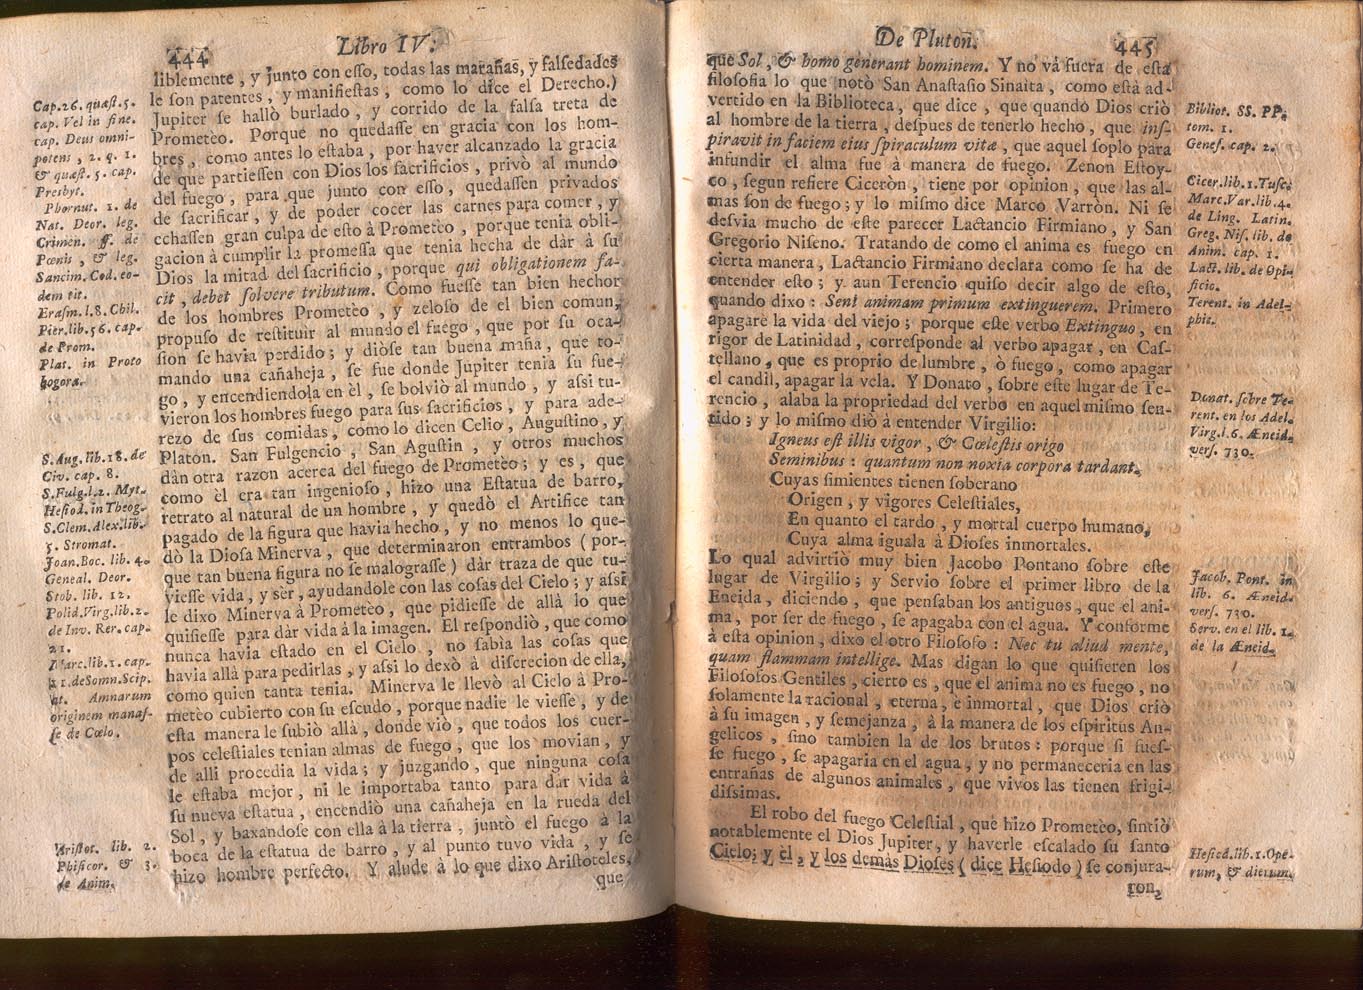 444
Libro IV.
liblemente, y junto con esso, todas las marañas, y falsedades
le son patentes, y manifiestas, como lo dice el Derecho.)
Jupiter se hallò burlado, y corrido de la falsa treta de
Prometèo. Porque no quedasse en gracia con los hom-
bres, como antes lo estaba, por haver alcanzado la gracia
de que partiessen con Dios los sacrificios, privò al mundo
del fuego, para que junto con esso, quedassen privados
de sacrificar, y de poder cocer las carnes para comer, y
echassen gran culpa de esto à Prometèo, porque tenia obli-
gacion à cumplir la promessa que tenia hecha de dàr à su
Dios la mitad del sacrificio, porque qui obligationem fa-
cit, debet solvere tributum. Como fuesse tan bien hechor
de los hombres Prometèo, y zeloso de el bien comun,
propuso de restituir al mundo el fuego, que por su oca-
sion se havia perdido; y diòse tan buena maña, que to-
mando una cañaheja, se fue donde Jupiter tenia su fue-
go, y encendiendola en èl, se bolviò al mundo, y assi tu-
vieron los hombres fuego para sus sacrificios, y para ade-
rezo de sus comidas, como lo dicen Celio, Augustino, y
Platon. San Fulgencio, San Agustin, y otros muchos
dàn otra razon acerca del fuego de Prometèo; y es, que
como èl era tan ingenioso, hizo una Estatua de barro,
retrato al natural de un hombre, y quedò el Artifice tan
pagado de la figura que havia hecho, y no menos lo que-
dò la Diosa Minerva, que determinaron entrambos (por-
que tan buena figura no se malograsse) dàr traza de que tu-
viesse vida, y sèr, ayudandole con las cosas del Cielo; y assi
le dixo Minerva à Prometèo, que pidiesse de allà lo que
quisiesse para dàr vida à la imagen. El respondiò, que como
nunca havia estado en el Cielo, no sabìa las cosas que
havia allà para pedirlas, y assi lo dexò à discrecion de ella,
como quien tanta tenia. Minerva le llevò al Cielo à Pro-
metèo cubierto con su escudo, porque nadie le viesse, y de
esta manera le subiò allà, donde viò, que todos los cuer-
pos celestiales tenian almas de fuego, que los movian, y
de alli procedia la vida; y juzgando, que ninguna cosa
le estaba mejor, ni le importaba tanto para dàr vida à
su nueva estatua, encendiò una cañaheja en la rueda del
Sol, y baxandose con ella à la tierra, juntò el fuego à la
boca de la estatua de barro, y al punto tuvo vida, y se
hizo hombre perfecto. Y alude à lo que dixo Aristoteles,
que
Cap. 26. quæst. 5.
cap. Vel in fine.
cap. Deus omni-
potens, 2. q. 1.
& quæst. 5. cap.
Presbyt.
Phornut. 1. de
Nat. Deor. leg.
Crimen. ff. de
Pœnis, & leg.
Sancim. Cod. eo-
dem tit.
Erasm. l. 8. Chil.
Pier. lib. 56. cap.
de Prom.
Plat. in Proto
hogora.
S. Aug. lib. 18. de
Civ. cap. 8.
S. Fulg. l. 2. Myt.
Hesiod. in Theog.
S. Clem. Alex. lib.
5. Stromat.
Joan. Boc. lib. 4.
Geneal. Deor.
Stob. lib. 12.
Polid. Virg. lib. 2.
de Inv. Rer. cap.
21.
Marc. lib. 1. cap.
11. de Somn. Scip.
at. Amnarum
originem manas-
se de Cœlo.
Aristot. lib. 2.
Phisicor. & 3.
de Anim.
De Pluton.
445
que Sol, & homo generant hominem. Y no và fuera de esta
filosofia lo que notò San Anastasio Sinaita, como està ad-
vertido en la Biblioteca, que dice, que quando Dios criò
al hombre de la tierra, despues de tenerlo hecho, que ins-
piravit in faciem eius spiraculum vitæ, que aquel soplo para
infundir el alma fue à manera de fuego. Zenon Estoy-
co, segun refiere Ciceròn, tiene por opinion, que las al-
mas son de fuego; y lo mismo dice Marco Varròn. Ni se
desvia mucho de este parecer Lactancio Firmiano, y San
Gregorio Niseno. Tratando de como el anima es fuego en
cierta manera, Lactancio Firmiano declara como se ha de
entender esto; y aun Terencio quiso decir algo de esto,
quando dixo: Seni animam primum extinguerem. Primero
apagarè la vida del viejo; porque este verbo Extinguo, en
rigor de Latinidad, corresponde al verbo apagar, en Cas-
tellano, que es proprio de lumbre, ò fuego, como apagar
el candil, apagar la vela. Y Donato, sobre este lugar de Te-
rencio, alaba la propriedad del verbo en aquel mismo sen-
tido; y lo mismo diò à entender Virgilio:
Igneus est illis vigor, & Cœlestis origo
Seminibus: quantum non noxia corpora tardant.
Cuyas simientes tienen soberano
Origen, y vigores Celestiales,
En quanto el tardo, y mortal cuerpo humano,
Cuya alma iguala à Dioses inmortales.
Lo qual advirtiò muy bien Jacobo Pontano sobre este
lugar de Virgilio; y Servio sobre el primer libro de la
Eneida, diciendo, que pensaban los antiguos, que el ani-
ma, por ser de fuego, se apagaba con el agua. Y conforme
à esta opinion, dixo el otro Filosofo: Nec tu aliud mente,
quam flammam intellige. Mas digan lo que quisieren los
Filosofos Gentiles, cierto es, que el anima no es fuego, no
solamente la racional, eterna, è inmortal, que Dios criò
à su imagen, y semejanza, à la manera de los espiritus An-
gelicos, sino tambien la de los brutos: porque si fues-
se fuego, se apagaria en el agua, y no permaneceria en las
entrañas de algunos animales, que vivos las tienen frigi-
dissimas.
El robo del fuego Celestial, que hizo Prometèo, sintiò
notablemente el Dios Jupiter, y haverle escalado su santo
Cielo; y èl, y los demàs Dioses (dice Hesiodo) se conjura-
ron,
Bibliot. SS. PP.
tom. 1.
Genes. cap. 2.
Cicer. lib. 1. Tusc.
Marc. Var. lib. 4.
de Ling. Latin.
Greg. Nis. lib. de
Anim. cap. 1.
Lact. lib. de Opi-
ficio.
Terent. in Adel-
phis.
Donat. sobre Te-
rent. en los Adel.
Virg. l. 6. Æneid.
vers. 730.
Jacob. Pont. in
lib. 6. Æneid.
vers. 730.
Serv. en el lib. 1.
de la Æneid.
Hesiod. lib. 1. Ope-
rum, & dierum.